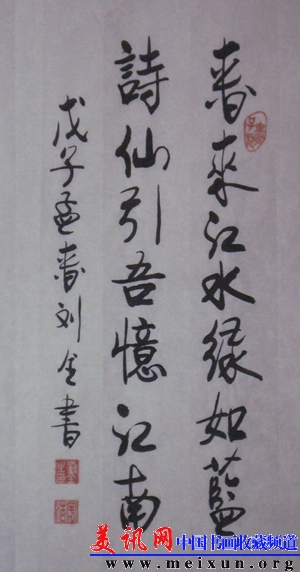 春來江水緑如藍
詩仙引吾憶江南
戊子孟春刘全書
美讯网 中国书画收藏频道
www.meixun.org